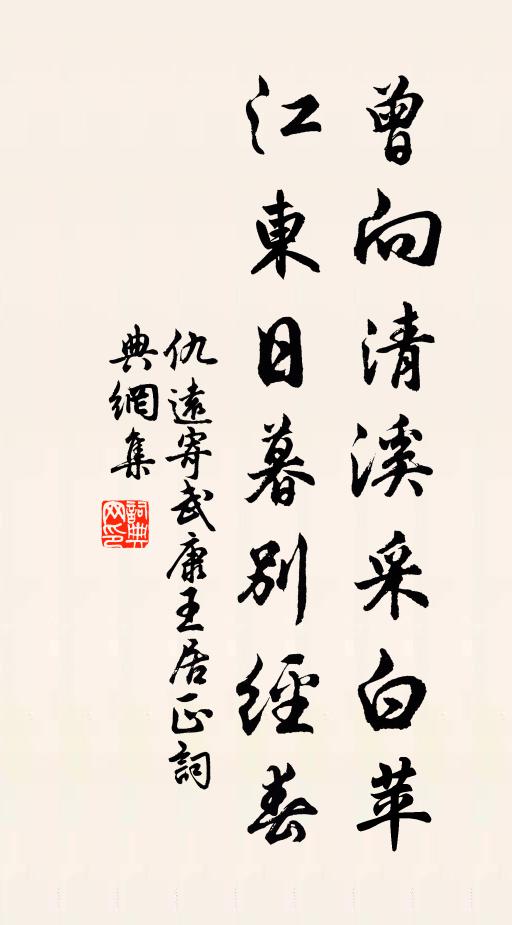 曾向清溪采白苹
江東日暮別經春
仇遠寄武康王居正詞
典網集
詞典
网印